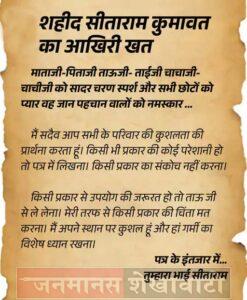 शहीद सीताराम कुमावत
का आखिरी खत
माताजी-पिताजी ताऊजी- ताईजी चाचाजी-
चाचीजी को सादर चरण स्पर्श और सभी छोटों को
प्यार वह जान पहचान वालों को नमस्कार ...
मैं सदैव आप सभी के परिवार की कुशलता की
प्रार्थना करता हूं। किसी भी प्रकार की कोई परेशानी हो
तो पत्र में लिखना। किसी प्रकार का संकोच नहीं करना।
किसी प्रकार से उपयोग की जरूरत हो तो ताऊ जी
से ले लेना। मेरी तरफ से किसी प्रकार की चिंता मत
करना। मैं अपने स्थान पर कुशल हूं और हां गर्मी का
विशेष ध्यान रखना।
पत्र के इंतजार में...
तुम्हारा भाई सीताराम
जनमानस शेखावाटी